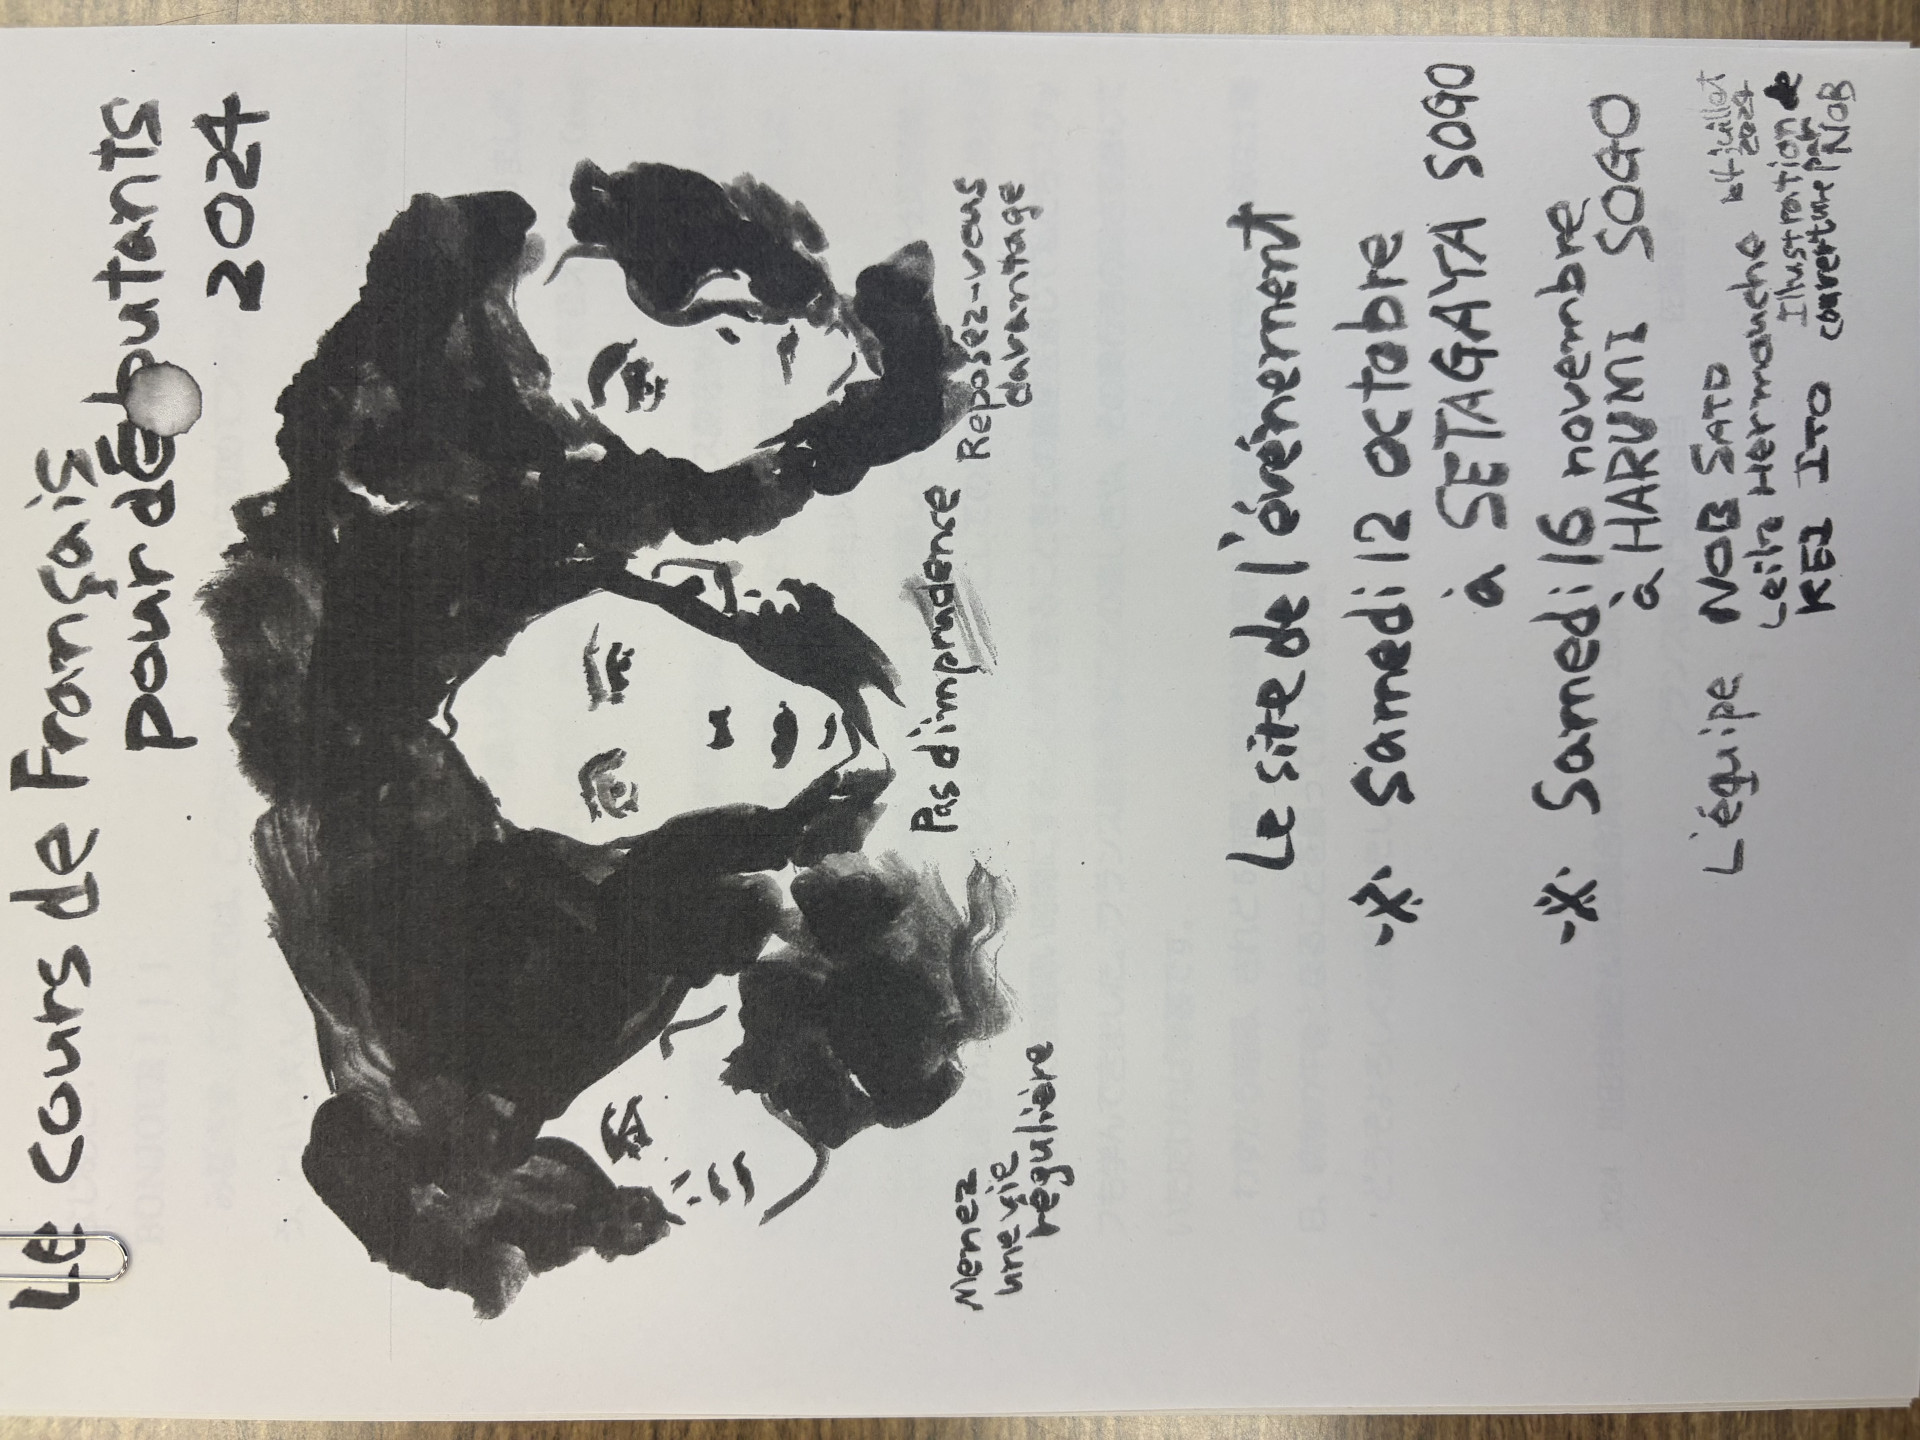 Le Cours de Français
pour débutants
2024
Menez
une vie
régulière
Pas d'imprudence
Reposez-vous
davantage
Le site de l'événement
※ Samedi 12 octobre
à SETAGAYA SOGO
※ Samedi 16 novembre
à HARUMI SOGO
L'équipe NOB SATO
Leila Hermouche
KEI ITO
juillet
2024
Illustration de
couverture par
NOB